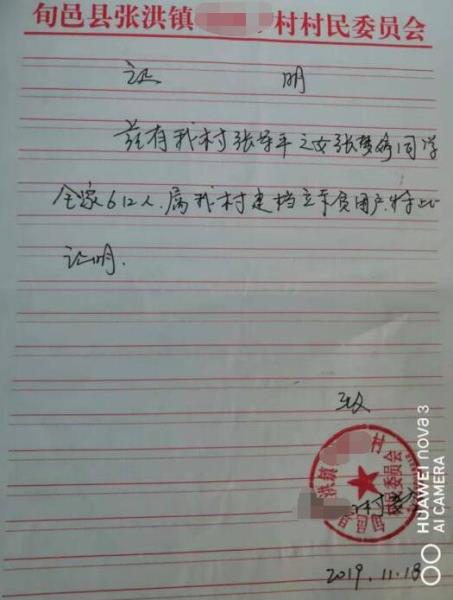 旬邑县张洪镇 村村民委员会
证 明
兹有我村张军平之女张梦婷同学
全家6口人,属我村建档立卡贫困户,特此
证明.
致
洪镇 村
村民委员会
旬邑县
2019.11.18
HUAWEI nova 3
AI CAMERA